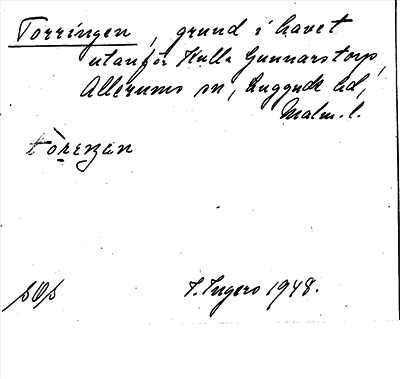 Torringen, grund i havet
utanför Kulla Gunnarstorp,
Allerums sn, Luggude hd,
Malm. l.
tòreŋan
SOs
I. Ingers 1948.